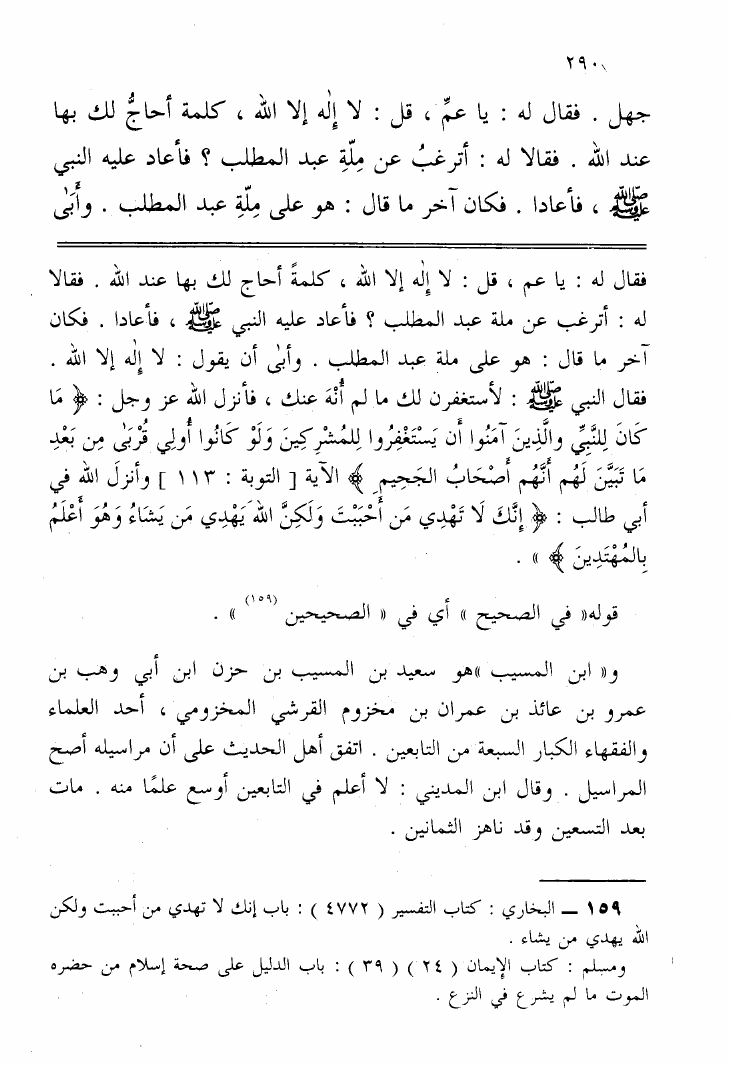 ٢٩٠
جهل . فقال له : يا عمِّ ، قل : لا إله إلا الله ، كلمة أحاجُّ لك بها
عند الله . فقالا له : أترغبُ عن مِلَّةِ عبد المطلب ؟ فأعاد عليه النبي
ﷺ ، فأعادا . فكان آخر ما قال : هو على مِلَّةِ عبد المطلب . وأَبَىٰ
فقال له : يا عم ، قل : لا إله إلا الله ، كلمةً أحاج لك بها عند الله . فقالا
له : أترغب عن ملة عبد المطلب ؟ فأعاد عليه النبي ﷺ ، فأعادا . فكان
آخر ما قال : هو على ملة عبد المطلب . وأبىٰ أن يقول : لا إله إلا الله .
فقال النبي ﷺ : لأستغفرن لك ما لم أُنْهَ عنك ، فأنزل الله عز وجل : ﴿ مَا
كَانَ لِلنَّبِيِّ والَّذِينَ آمَنُوا أَن يَسْتَغْفِرُوا لِلمُشْرِكِينَ وَلَوْ كَانُوا أُولِي قُرْبَىٰ مِن بَعْدِ
مَا تَبَيَّنَ لَهُم أَنَّهُم أَصْحَابُ الجَحِيمِ ﴾ الآية [ التوبة : ١١٣ ] وأنزلَ الله في
أبي طالب : ﴿ إِنَّكَ لَا تَهْدِي مَن أَحْبَبْتَ وَلَكِنَّ اللهَ يَهْدِي مَن يَشَاءُ وَهُوَ أَعْلَمُ
بِالمُهْتَدِينَ ﴾ » .
قوله« في الصحيح » أي في « الصحيحين (١٥٩) » .
و« ابن المسيب »هو سعيد بن المسيب بن حزن ابن أبي وهب بن
عمرو بن عائذ بن عمران بن مخزوم القرشي المخزومي ، أحد العلماء
والفقهاء الكبار السبعة من التابعين . اتفق أهل الحديث على أن مراسيله أصح
المراسيل . وقال ابن المديني : لا أعلم في التابعين أوسع علمًا منه . مات
بعد التسعين وقد ناهز الثمانين .
١٥٩ ــ البخاري : كتاب التفسير ( ٤٧٧٢ ) : باب إنك لا تهدي من أحببت ولكن
الله يهدي من يشاء .
ومسلم : كتاب الإيمان ( ٢٤ ) ( ٣٩ ) : باب الدليل على صحة إسلام من حضره
الموت ما لم يشرع في النزع .